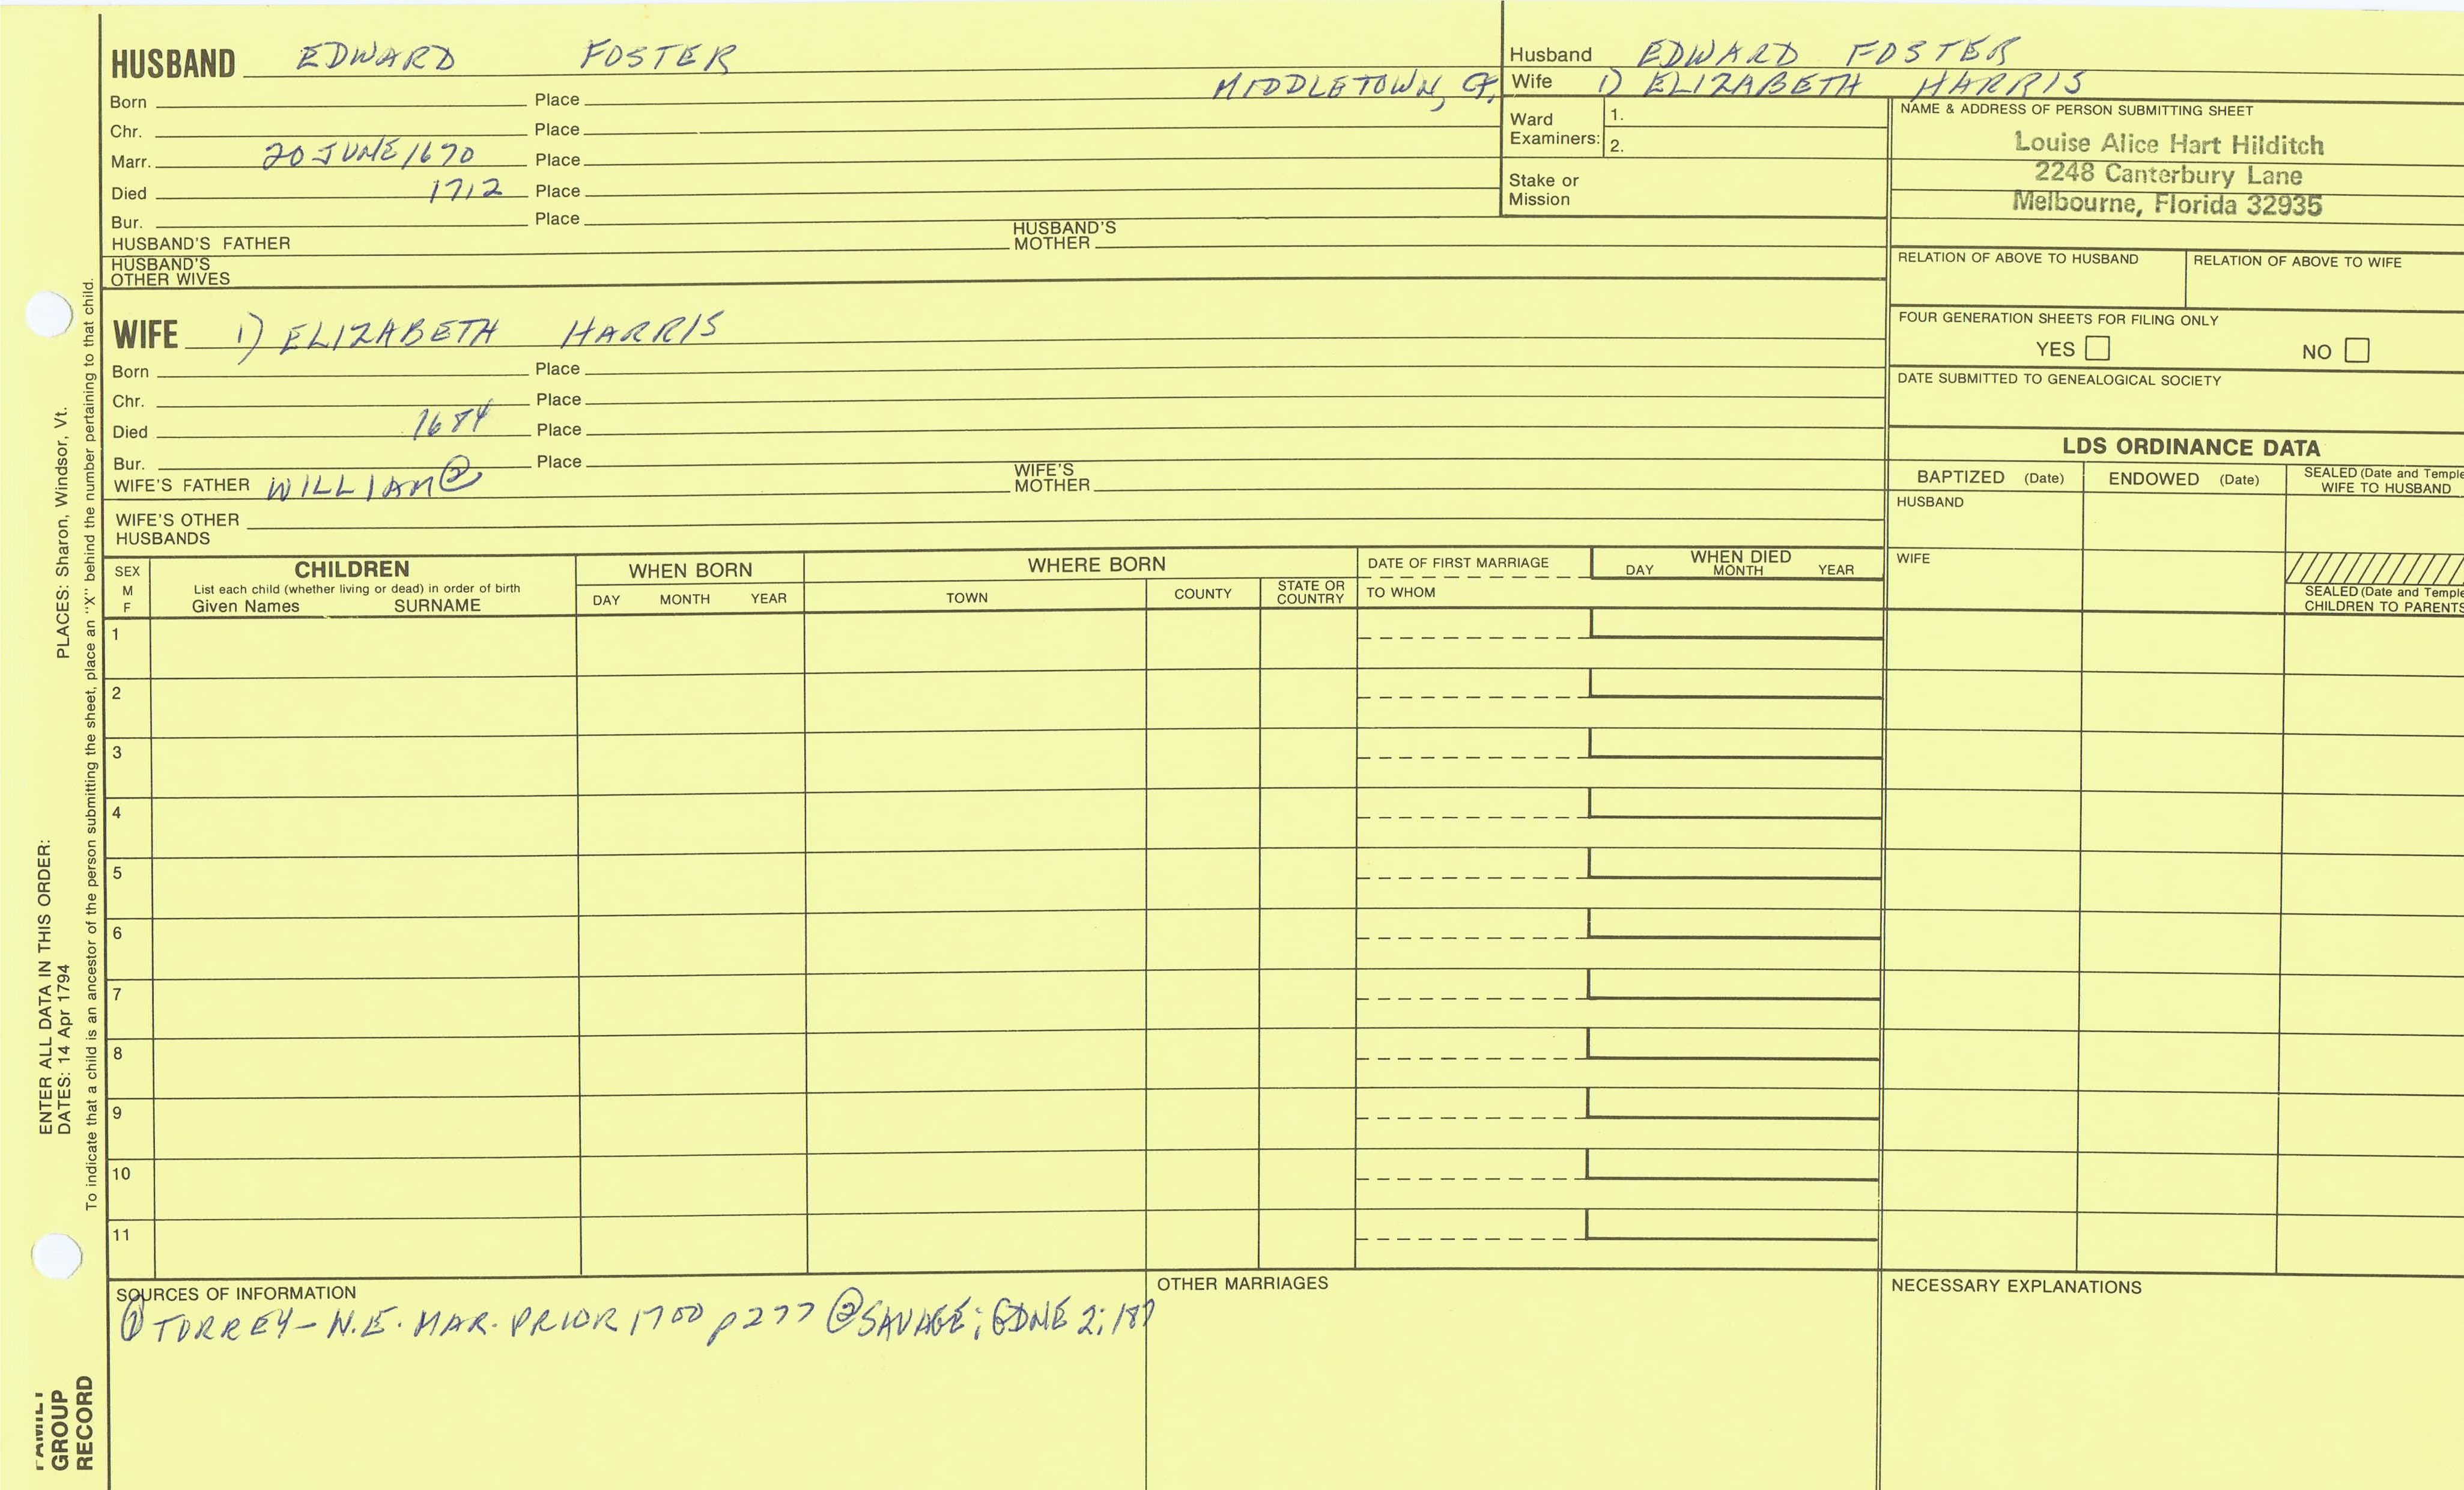 HUSBAND EDWARD FOSTER
Born Place MIDDLETOWN, CT.
Chr. Place
Marr. 20 JUNE 1670 Place
Died 1712 Place
Bur. Place
HUSBAND'S FATHER HUSBAND'S MOTHER
HUSBAND'S OTHER WIVES
Husband EDWARD FOSTER
Wife 1) ELIZABETH HARRIS
Ward Examiners: 1.
2.
Stake or Mission
NAME & ADDRESS OF PERSON SUBMITTING SHEET
Louise Alice Hart Hilditch
2248 Canterbury Lane
Melbourne, Florida 32935
RELATION OF ABOVE TO HUSBAND RELATION OF ABOVE TO WIFE
FOUR GENERATION SHEETS FOR FILING ONLY
YES NO
DATE SUBMITTED TO GENEALOGICAL SOCIETY
WIFE 1) ELIZABETH HARRIS
Born Place
Chr. Place
Died 1684 Place
Bur. Place
WIFE'S FATHER WILLIAM ② WIFE'S MOTHER
WIFE'S OTHER HUSBANDS
LDS ORDINANCE DATA
BAPTIZED (Date) ENDOWED (Date) SEALED (Date and Temple
WIFE TO HUSBAND
HUSBAND
WIFE
SEALED (Date and Temple
CHILDREN TO PARENTS
SEX
M
F
CHILDREN
List each child (whether living or dead) in order of birth
Given Names SURNAME
WHEN BORN
DAY MONTH YEAR
WHERE BORN
TOWN COUNTY STATE OR COUNTRY
DATE OF FIRST MARRIAGE
TO WHOM
WHEN DIED
DAY MONTH YEAR
1
2
3
4
5
6
7
8
9
10
11
SOURCES OF INFORMATION
① TORREY - N.E. MAR. PRIOR 1700 p277 ② SAVAGE; GDNE 2:187
OTHER MARRIAGES
NECESSARY EXPLANATIONS
ENTER ALL DATA IN THIS ORDER:
DATES: 14 Apr 1794
PLACES: Sharon, Windsor, Vt.
To indicate that a child is an ancestor of the person submitting the sheet, place an "X" behind the number pertaining to that child.
FAMILY
GROUP
RECORD